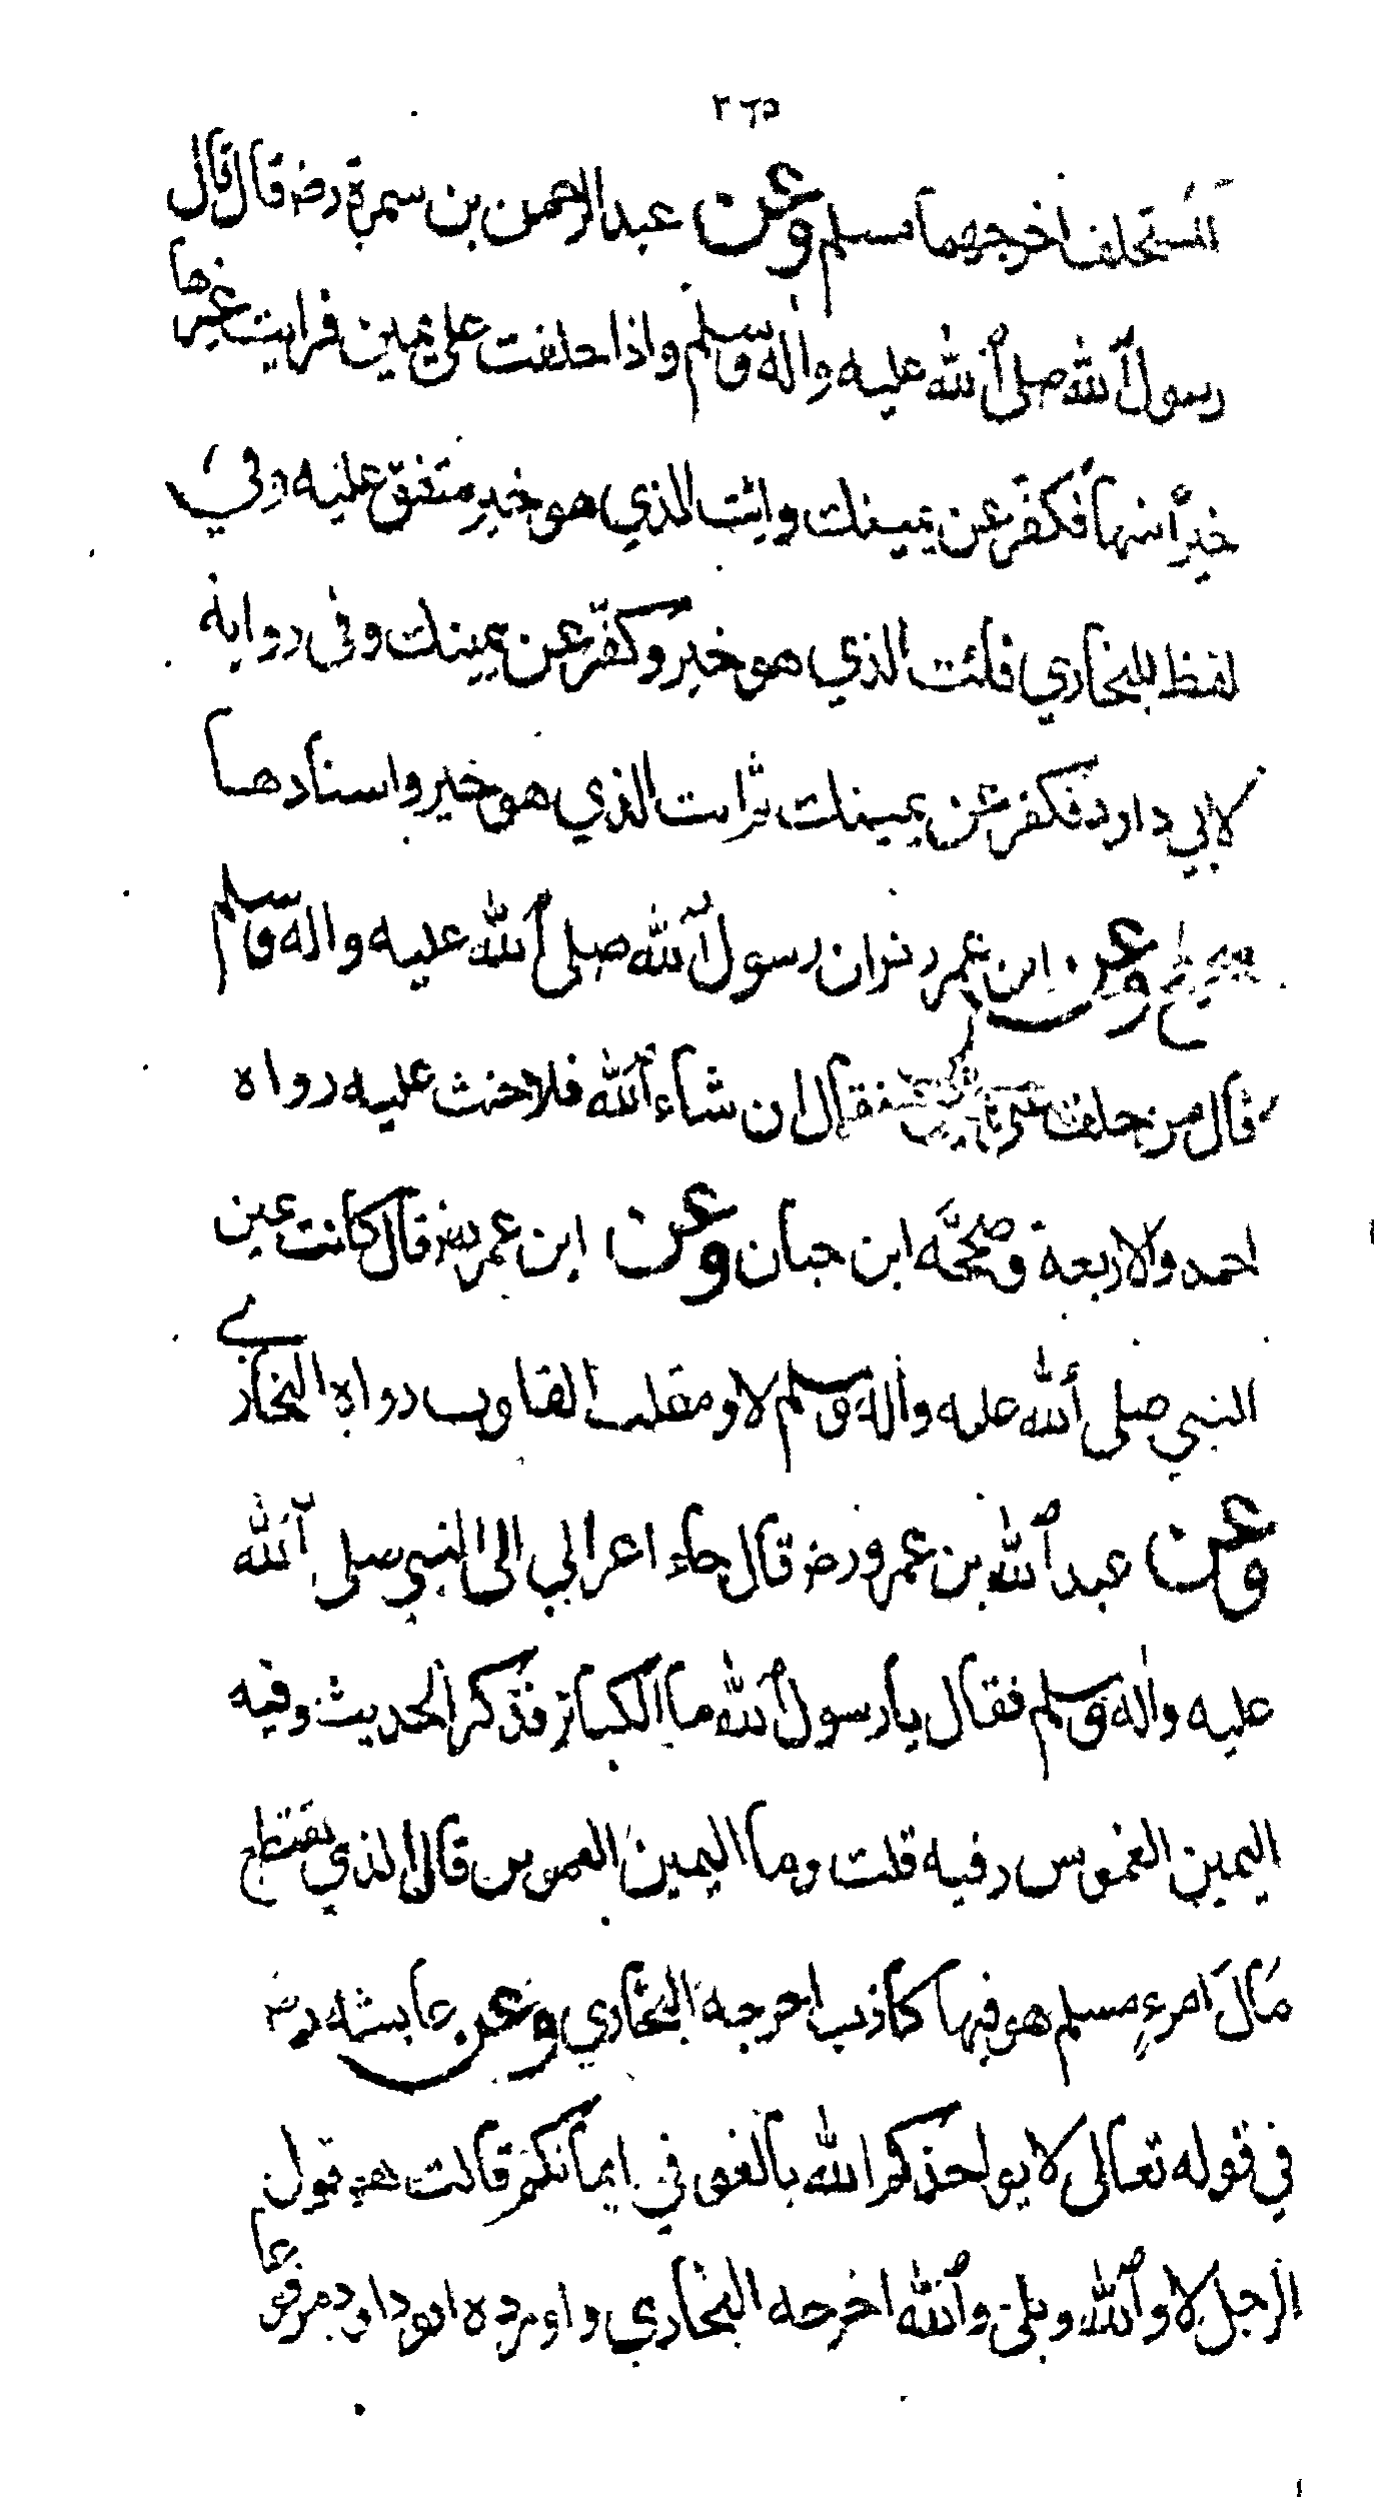 ٢٦٥
المستحلف اخرجهما مسلم وعن عبد الرحمن بن سمرة رض قال قال
رسول الله صلى الله عليه واله وسلم واذا حلفت على يمين فرايت غيرها
خيرا منها فكفر عن يمينك وائت الذي هو خير متفق عليه وفي
لفظ للبخاري فائت الذي هو خير وكفر عن يمينك وفى رواية
لابي داود فكفر عن يمينك ثم ائت الذي هو خير واسنادها
صحيح وعن ابن عمر رض ان رسول الله صلى الله عليه واله وسلم
قال من حلف على يمين فقال ان شاء الله فلا حنث عليه رواه
احمد والاربعة وصححه ابن حبان وعن ابن عمر رض قال كانت يمين
النبي صلى الله عليه واله وسلم لا ومقلب القلوب رواه البخاري
وعن عبد الله بن عمرو رض قال جاء اعرابي الى النبي صلى الله
عليه واله وسلم فقال يا رسول الله ما الكبائر فذكر الحديث وفيه
اليمين الغموس وفيه قلت وما اليمين الغموس قال الذي يقتطع
مال امرء مسلم هو فيها كاذب اخرجه البخاري وعن عايشه رض
في قوله تعالى لا يواخذكم الله بالغو في ايمانكم قالت هو قول
الرجل لا والله وبلى والله اخرجه البخاري واورده ابو داود مرفوعا